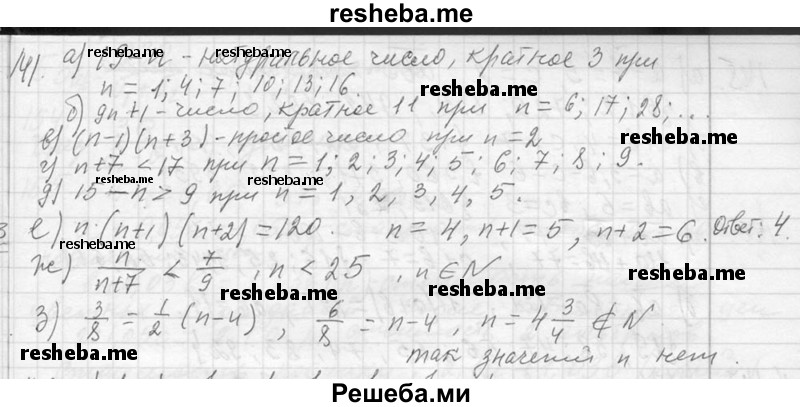 resheba.me
141. а) 19 - n - натуральное число, кратное 3 при
n = 1; 4; 7; 10; 13; 16.
б) 9n+1 - число, кратное 11 при n = 6; 17; 28; ...
в) (n-1)(n+3) - простое число при n = 2
г) n+7 < 17 при n = 1; 2; 3; 4; 5; 6; 7; 8; 9.
д) 15 - n > 9 при n = 1, 2, 3, 4, 5.
е) n·(n+1)(n+2) = 120. n = 4, n+1 = 5, n+2 = 6. Ответ: 4.
ж) n/(n+7) < 7/9, n < 25, n ∈ N
з) 3/8 = 1/2 (n-4), 6/8 = n-4, n = 4 3/4 ∉ N.
так значений n нет.
resheba.me
resheba.me
resheba.me
resheba.me
resheba.me
resheba.me
resheba.me
resheba.me
resheba.me
resheba.me
Решеба.ми